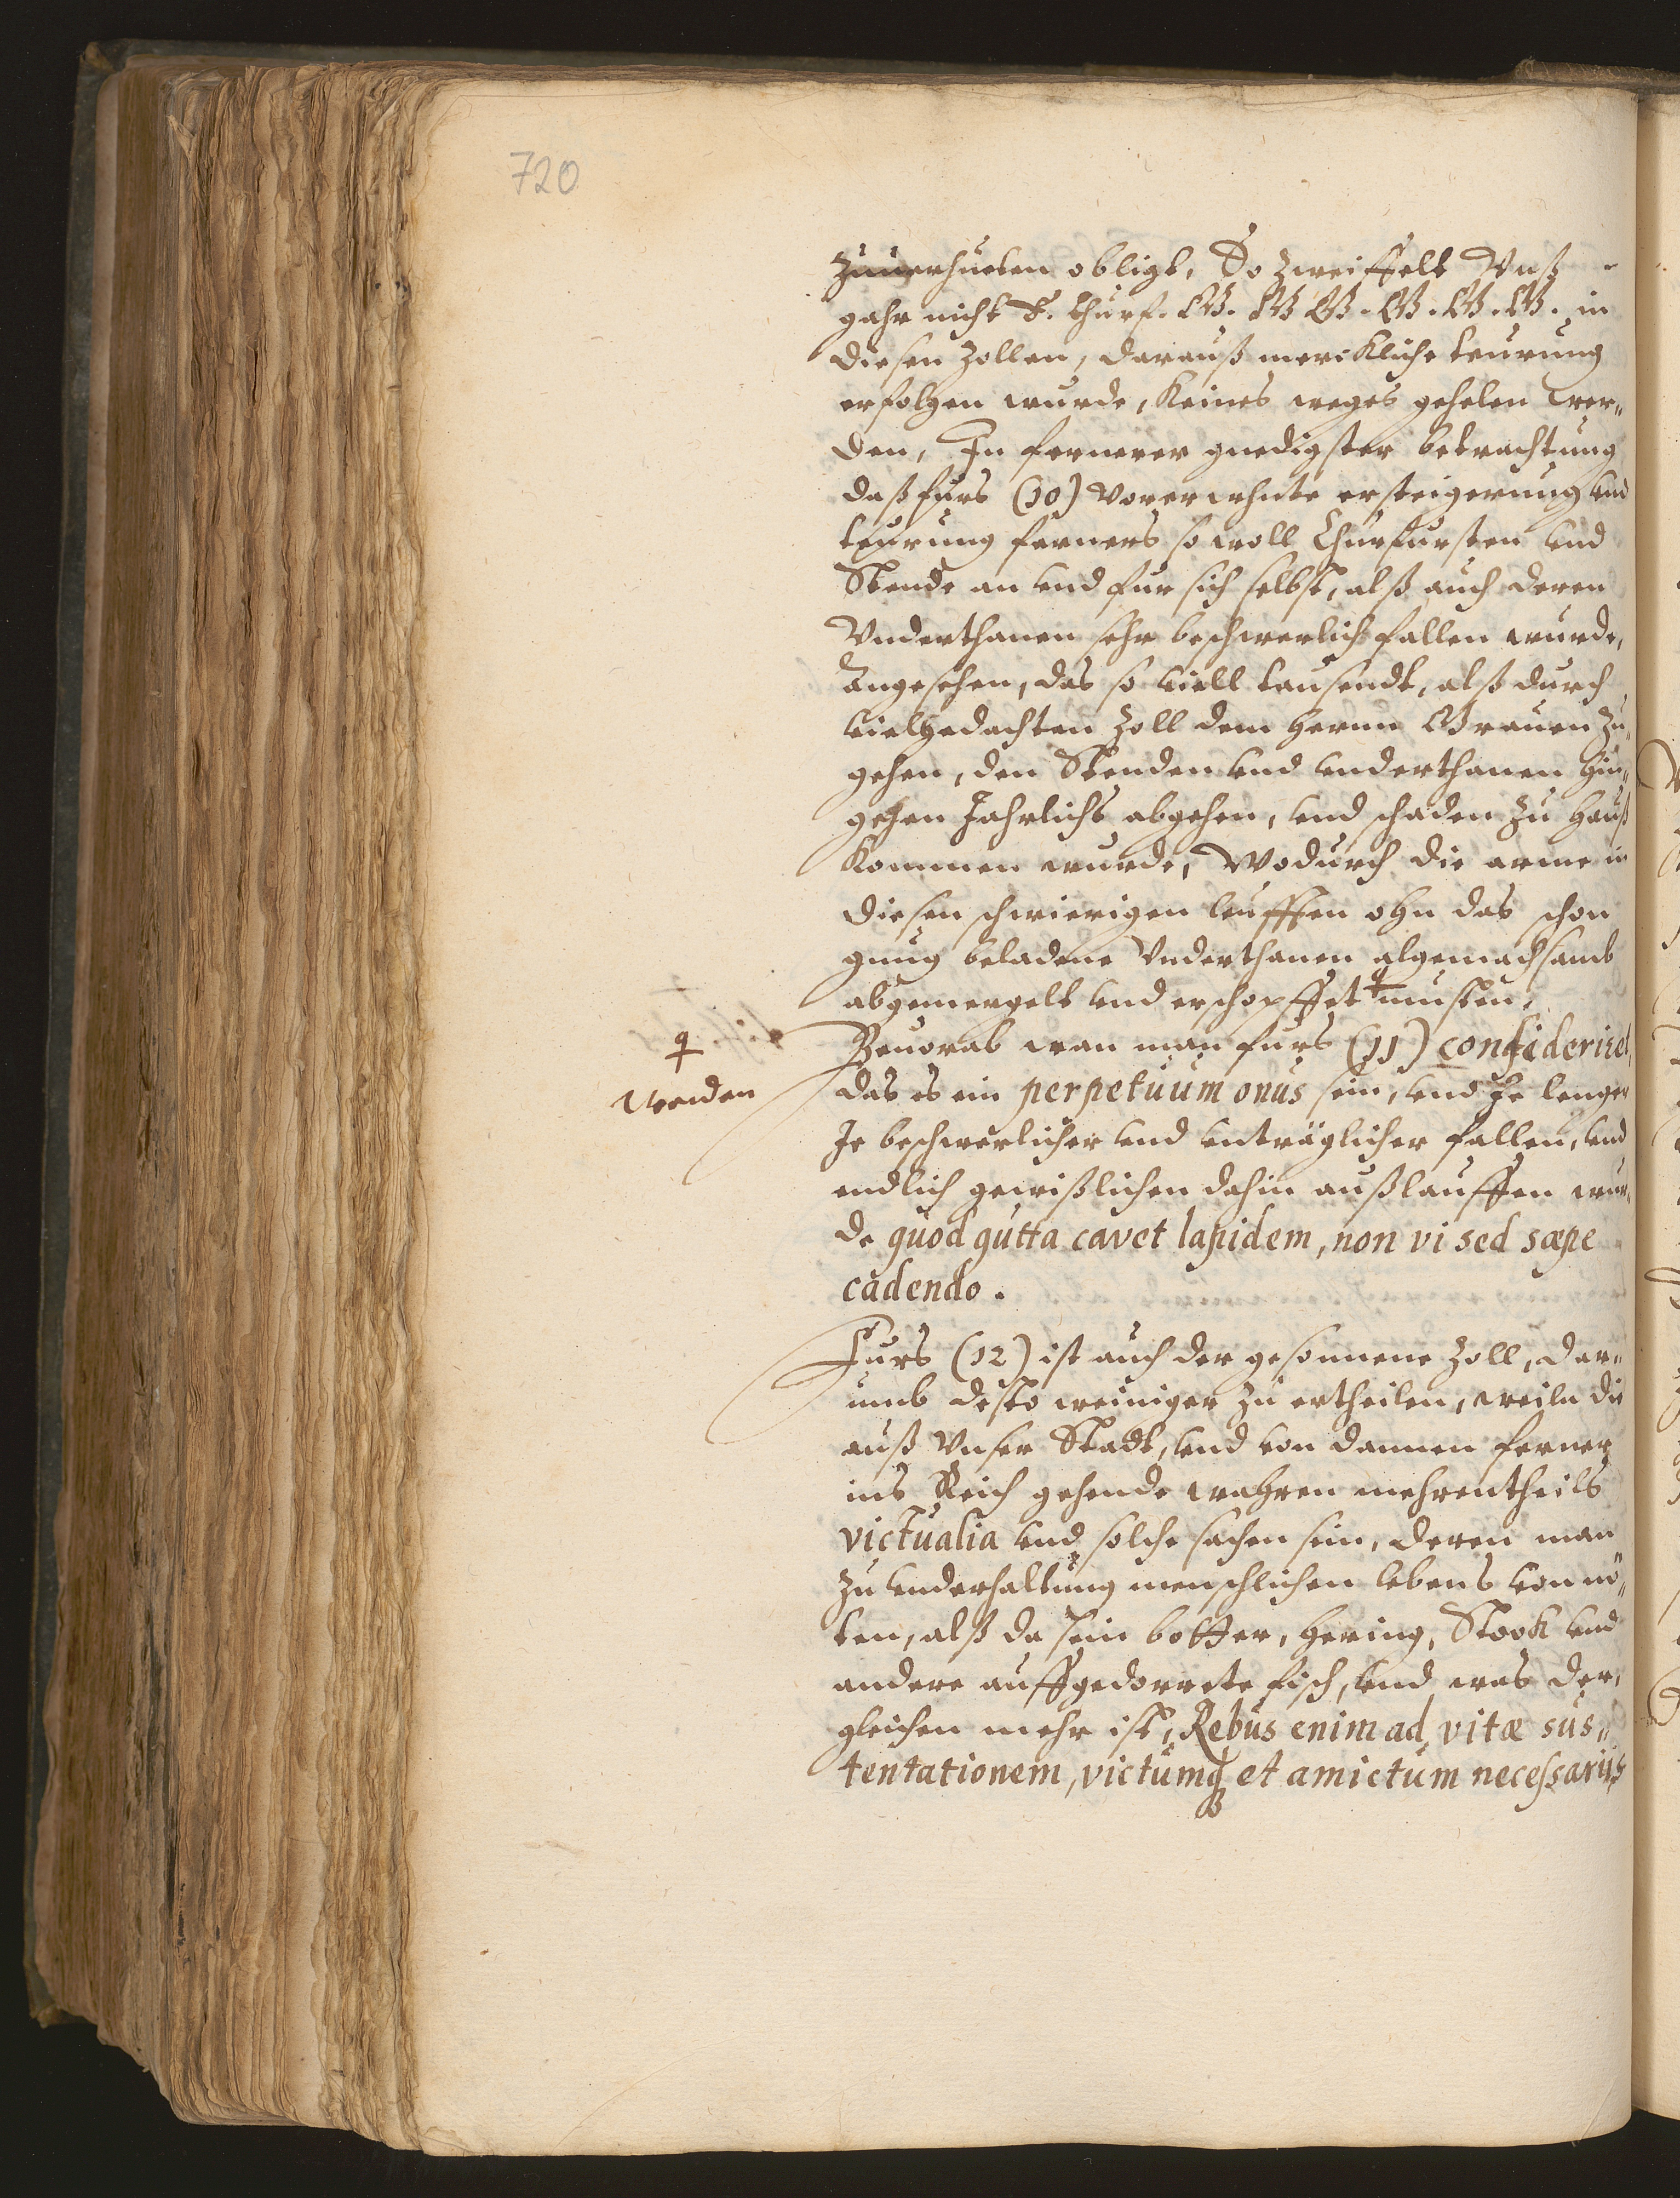 720
Zuuerhueten obligt, So zweiffelt Vnß
gahr nicht E. Churf. GG. GG. GG. GG. in
diesen Zollen, darauß merckliche teurung
erfolgen wurde, keines weges gehelen wer„
den, In fernerer gnedigster betrachtung
daß furs (10) vorerwehnte ersteigerung vnd
teurung ferners so woll Churfursten vnd
Stende an vnd fur sich selbst, alß auch deren
Vnderthanen sehr beschwerlich fallen wurde,
Angesehen, das so viell tausendt, alß durch
vielgedachten Zoll dem herrn Grauen zu„
gehen, den Stenden vnd vnderthanen hin„
gehen Jahrlichs abgehen, vnd schaden zu hauß
kommen wurde, Wodurch die arme in
diesen schwierigen leufften ohn das schon
gnug beladene Vnderthanen algemachsamb
abgemergelt vnd erschopffet musten.
werden
Beuorab wan man furs (11) consideriret
das es ein perpetuum onus sein, vnd Je lenger
Je beschwerlicher vnd vnträglicher fallen, vnd
endlich gewißlichen dahin außlauffen wur„
de quod gutta cavet lapidem, non vi sed sæpe
cadendo.
Furs (12) ist auch der gesonnene Zoll, dar„
umb desto weiniger zu ertheilen, weiln die
auß Vnser Stadt, vnd von dannen ferner
ins Reich gehende wahren mehrentheils
victualia vnd solche sachen sein, deren man
zu vnderhaltung menschlichen lebens von nö„
ten, alß da sein botter, hering, Stock vnd
andere auffgedorrete fisch, vnd was der„
gleichen mehr ist, Rebus enim ad vitæ sus„
tentationem, victumq; et amictum necessariis